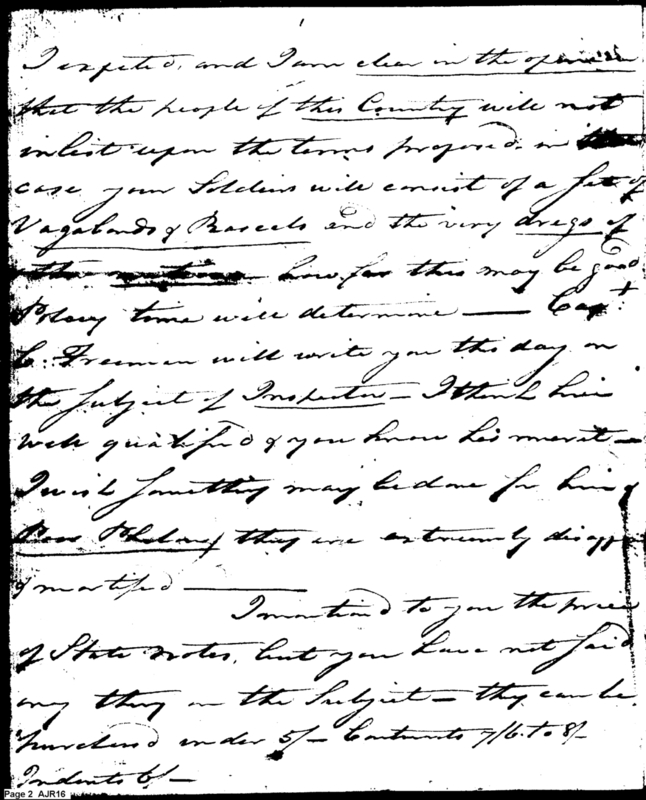 I expected, and I am clear in the opinion
that the people of this Country will not
inlist upon the terms proposed. in
case your Soldiers will consist of a set of
Vagabonds & Rascels and the very dregs of
how far this may be good
Policy time will determine — Capt
C: Freeman will write you this day on
the subject of Inspector — I think him
well qualified & you know his merit —
I wish something may be done for him &
they are extremely disapp
& mortified —
I mentiond to you the price
of State Notes, but you have not said
any thing on the Subject — they can be
purchasd under 5/– 7/6. to 8/–
Indents 6/–
Page 2 AJR16